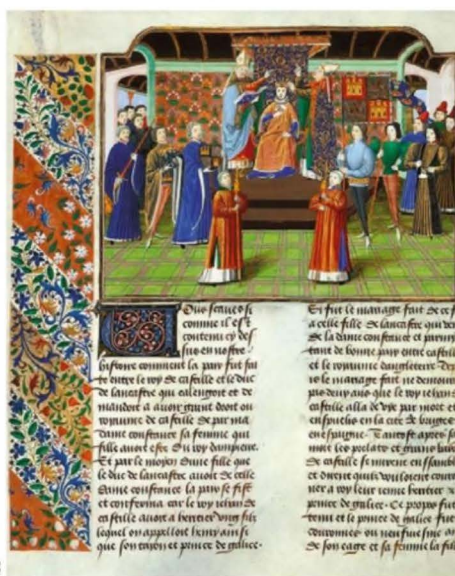 Ous scaues si
comme il est
contenu cy des
sus en nostre
histoire comment la paix fut fai
te entre le roy de castille et le duc
de lancastre qui calengoit et de
mandoit a auoir grant droit ou
royaume de castille de par ma
dame constance sa femme qui
fille auoit este du roy dampietre.
Et par le moyen dune fille que
le duc de lancastre auoit de celle
dame constance la paix se fist
et conferma car le roy iehan de
castille auoit a heritier vng filz
lequel on appelloit henry ainsi
que son tayon et prince de galice.
Et fut le mariage fait de ce f
a celle fille de lancastre qui ven
de la dame constance et parmy
tant de bonne paix entre castill
et le royaume dangleterre
le mariage fait ne demoura
pas deux ans que le roy iehan
castille alla de vye par mort et
enseuely en la cite de burges
en espaigne. Tantost apres sa
mort les prelatz et grans bar
de castille se mirent en samble
et dirent quilz vouloient couro
ner a roy leur ieune heritier
prince de galice. Ce propos fut
tenu et le prince de galice fut
couronne ou neufuisme an
de son eage et sa femme la fil